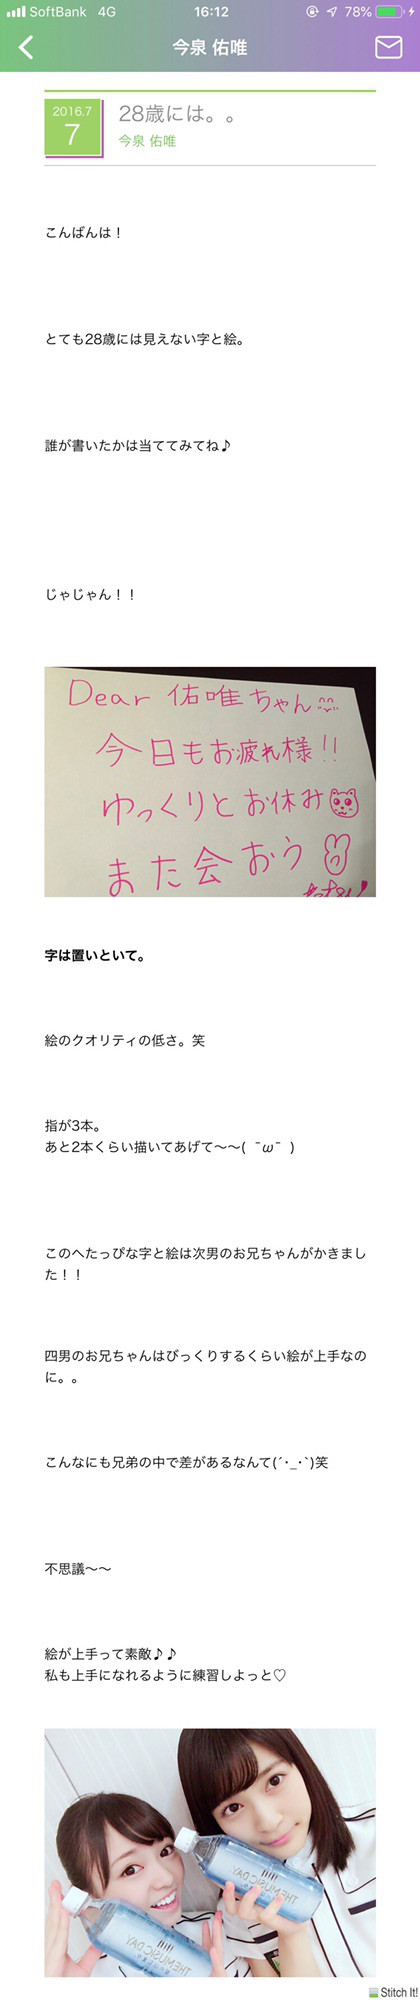 SoftBank 4G 16:12 78%
今泉 佑唯
2016.7
7
28歳には。。
今泉 佑唯
こんばんは！
とても28歳には見えない字と絵。
誰が書いたかは当ててみてね♪
じゃじゃん！！
Dear 佑唯ちゃん
今日もお疲れ様!!
ゆっくりとお休み
また会おう
字は置いといて。
絵のクオリティの低さ。笑
指が3本。
あと2本くらい描いてあげて〜〜( ˉωˉ )
このへたっぴな字と絵は次男のお兄ちゃんがかきまし
た！！
四男のお兄ちゃんはびっくりするくらい絵が上手なの
に。。
こんなにも兄弟の中で差があるなんて(´･_･`)笑
不思議〜〜
絵が上手って素敵♪♪
私も上手になれるように練習しよっと♡
THE MUSIC DAY
THE MUSIC DAY
Stitch It!